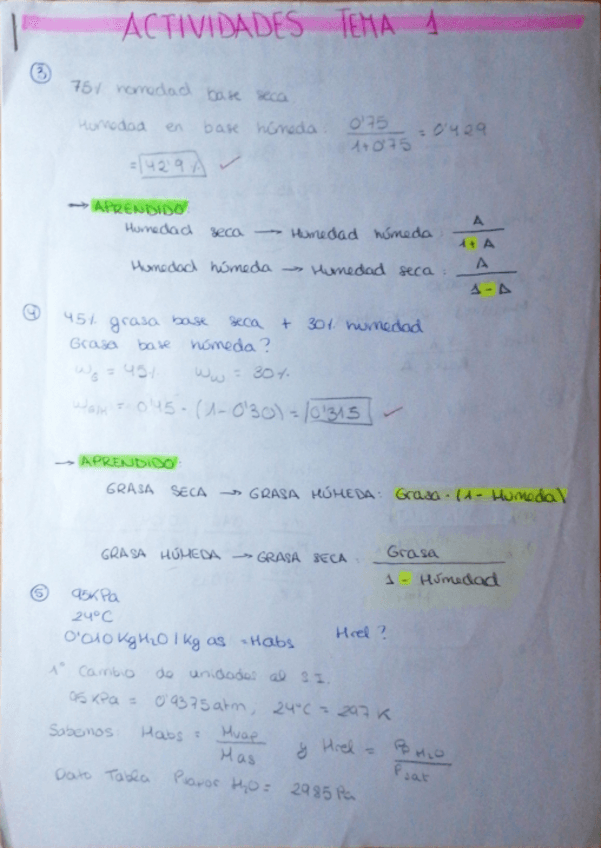 ACTIVIDADES TEMA 1
③
75% humedad base seca
Humedad en base húmeda: 0'75 / 1+0'75 = 0'429
= 42'9% ✓
→ APRENDIDO:
Humedad seca → Humedad húmeda: A / 1+A
Humedad húmeda → Humedad seca: A / 1-A
④ 45% grasa base seca + 30% humedad
Grasa base húmeda?
Ws = 45% Ww = 30%
= 0'45 · (1-0'30) = 0'315 ✓
→ APRENDIDO:
GRASA SECA → GRASA HÚMEDA: Grasa · (1 - Humeda)
GRASA HÚMEDA → GRASA SECA: Grasa / 1 - Húmedad
⑤ 95KPa
24ºC
0'010 KgH2O / Kg as = Habs Hrel?
1º Cambio de unidades al S.I.
95 KPa = 0'9375 atm, 24ºC = 297 K
Sabemos: Habs = Mvap / Mas y Hrel = PpH2O / Psat
Dato Tabla: Pvapor H2O = 2985 Pa